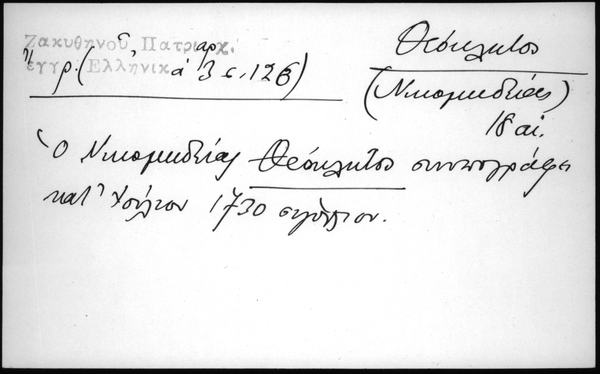 Ζακυθηνοῦ, Πατριαρχ.
ἔγγρ. (Ἑλληνικά 3 σ. 126)
Θεόκλητος
(Νικομηδείας)
18 αἰ.
Ὁ Νικομηδείας Θεόκλητος συνυπογράφει
κατ' Ἰούλιον 1730 σιγίλλιον.